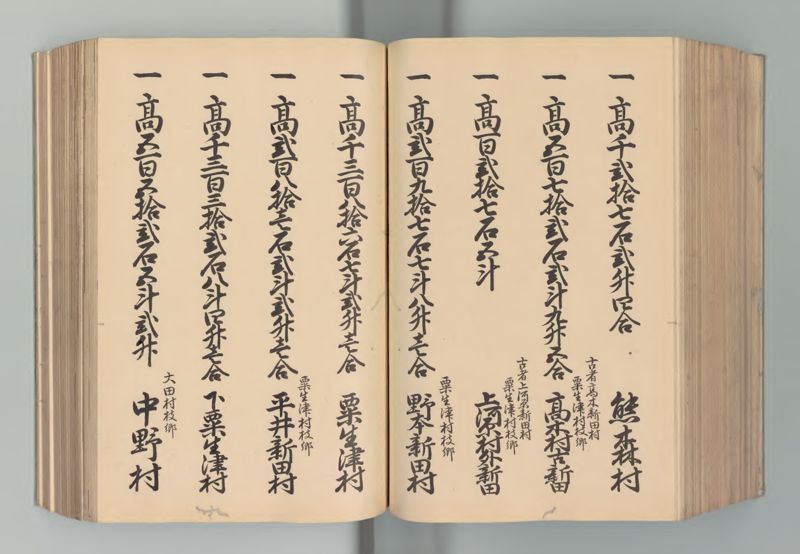 一 高千弐拾七石弐升四合 熊森村
古者高木新田村
粟生津村枝郷
一 高五百七拾弐石弐斗九升五合 高木村古新田
古者上河原新田村
粟生津村枝郷
一 高百弐拾七石五斗 上河原村外新田
粟生津村枝郷
一 高弐百九拾七石七斗八升壱合 野本新田村
一 高千三百八拾六石七斗弐升壱合 粟生津村
粟生津村枝郷
一 高弐百八拾壱石弐斗弐升壱合 平井新田村
一 高千三百三拾弐石八斗四升壱合 下粟生津村
大田村枝郷
一 高五百五拾弐石五斗弐升 中野村